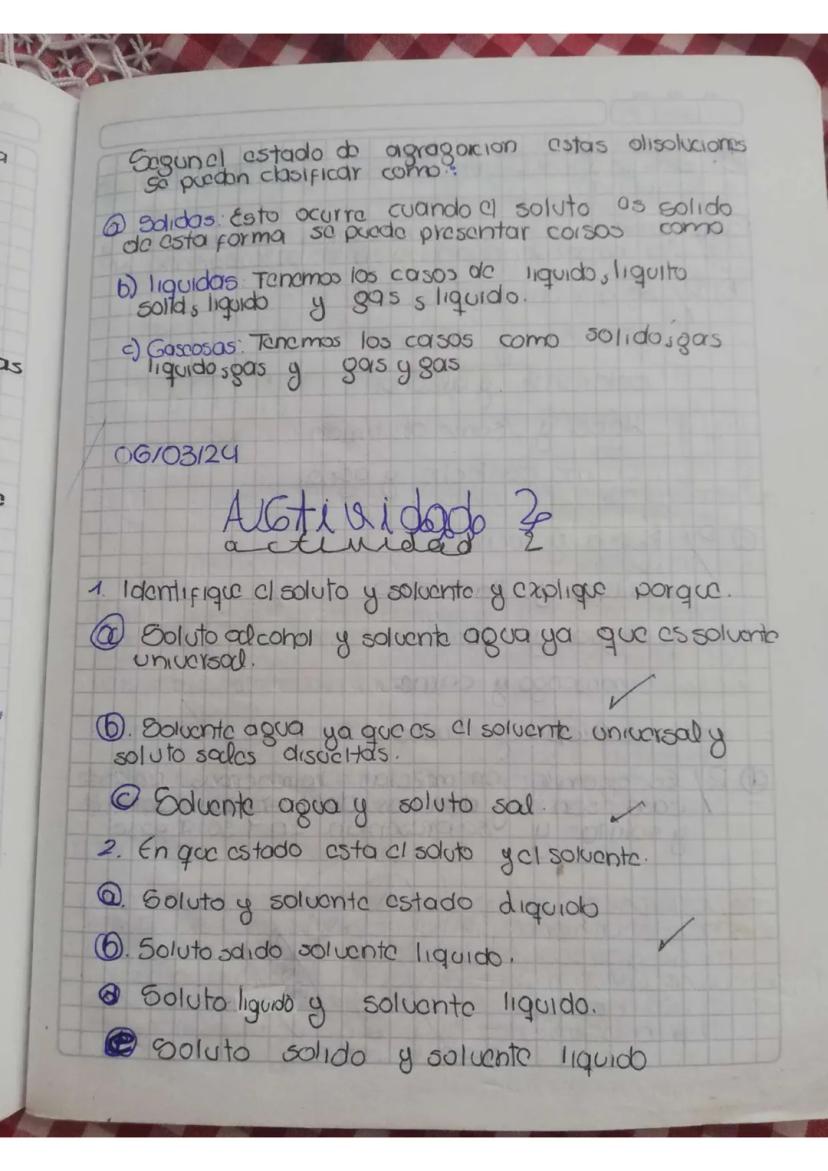 Segun el estado de agragacion estas disoluciones
se pueden clasificar como:
a) Solidas: Esto ocurre cuando el soluto es solido
de esta forma se puede presentar casos como
b) liquidas Tenemos los casos de liquido, liquito
solid, liquido y gas s liquido.
c) Gaseosas: Tenemos los casos como solido, gas
liquido, gas y gas y gas
as
06/03/24
Actividad 2
actividad 2
1. Identifique el soluto y solvente y explique porque.
a Soluto alcohol y solvente agua ya que es solvente
universal.
b. Solvente agua ya que es el solvente universal y
soluto sales disueltas.
c Solvente agua y soluto sal.
2. En que estado esta el soluto y el solvente.
a. Soluto y solvente estado liquido
b. Soluto solido solvente liquido.
d Soluto liquido y solvente liquido.
e Soluto solido y solvente liquido